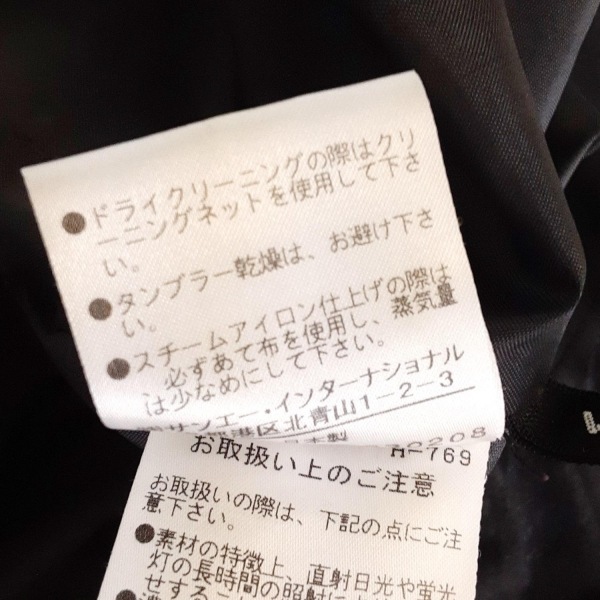 ●ドライクリーニングの際はクリ
ーニングネットを使用して下さ
い。
●タンブラー乾燥は、お避け下さ
い。
●スチームアイロン仕上げの際は
必ずあて布を使用し、蒸気量
は少なめにして下さい。
サンエー・インターナショナル
港区北青山1-2-3
日本製
H-769
お取扱い上のご注意
お取扱いの際は、下記の点にご注
意下さい。
●素材の特徴上、直射日光や蛍光
灯の長時間の照射に
せする